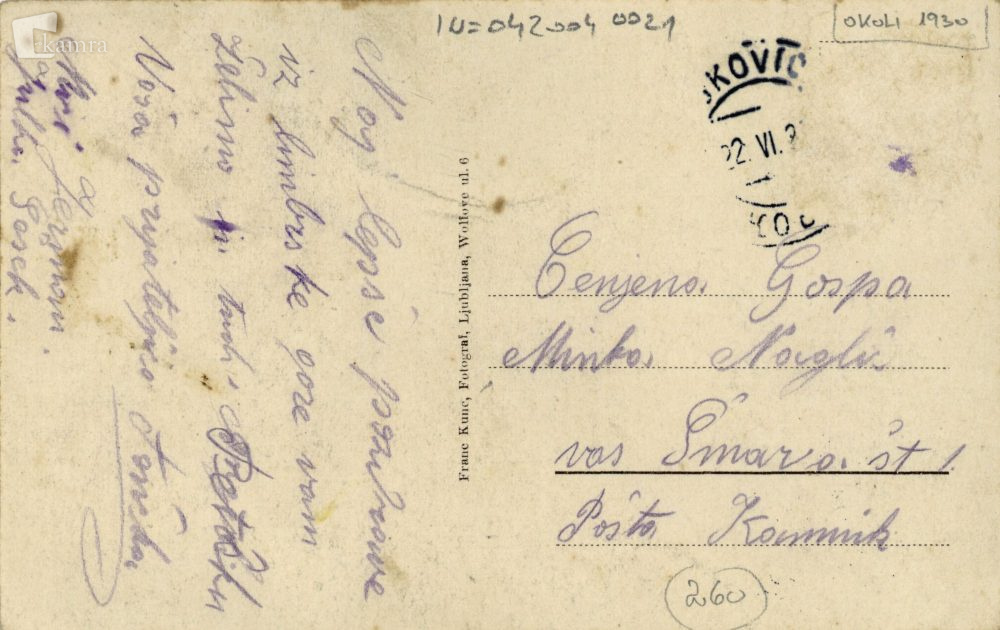 kamra
IN=042004 0021
OKOLI 1930
Naj lepše pozdrave
iz limbrske gore vam
želimo tudi
Vaša prijateljica Tončka.
Julka
Franc Kunc, Fotograf, Ljubljana, Wolfove ul. 6
KOVIC
22. VI. 3
Cenjena Gospa
Minka Naglič
vas Šmarca. št 1
Pošta Kamnik
260